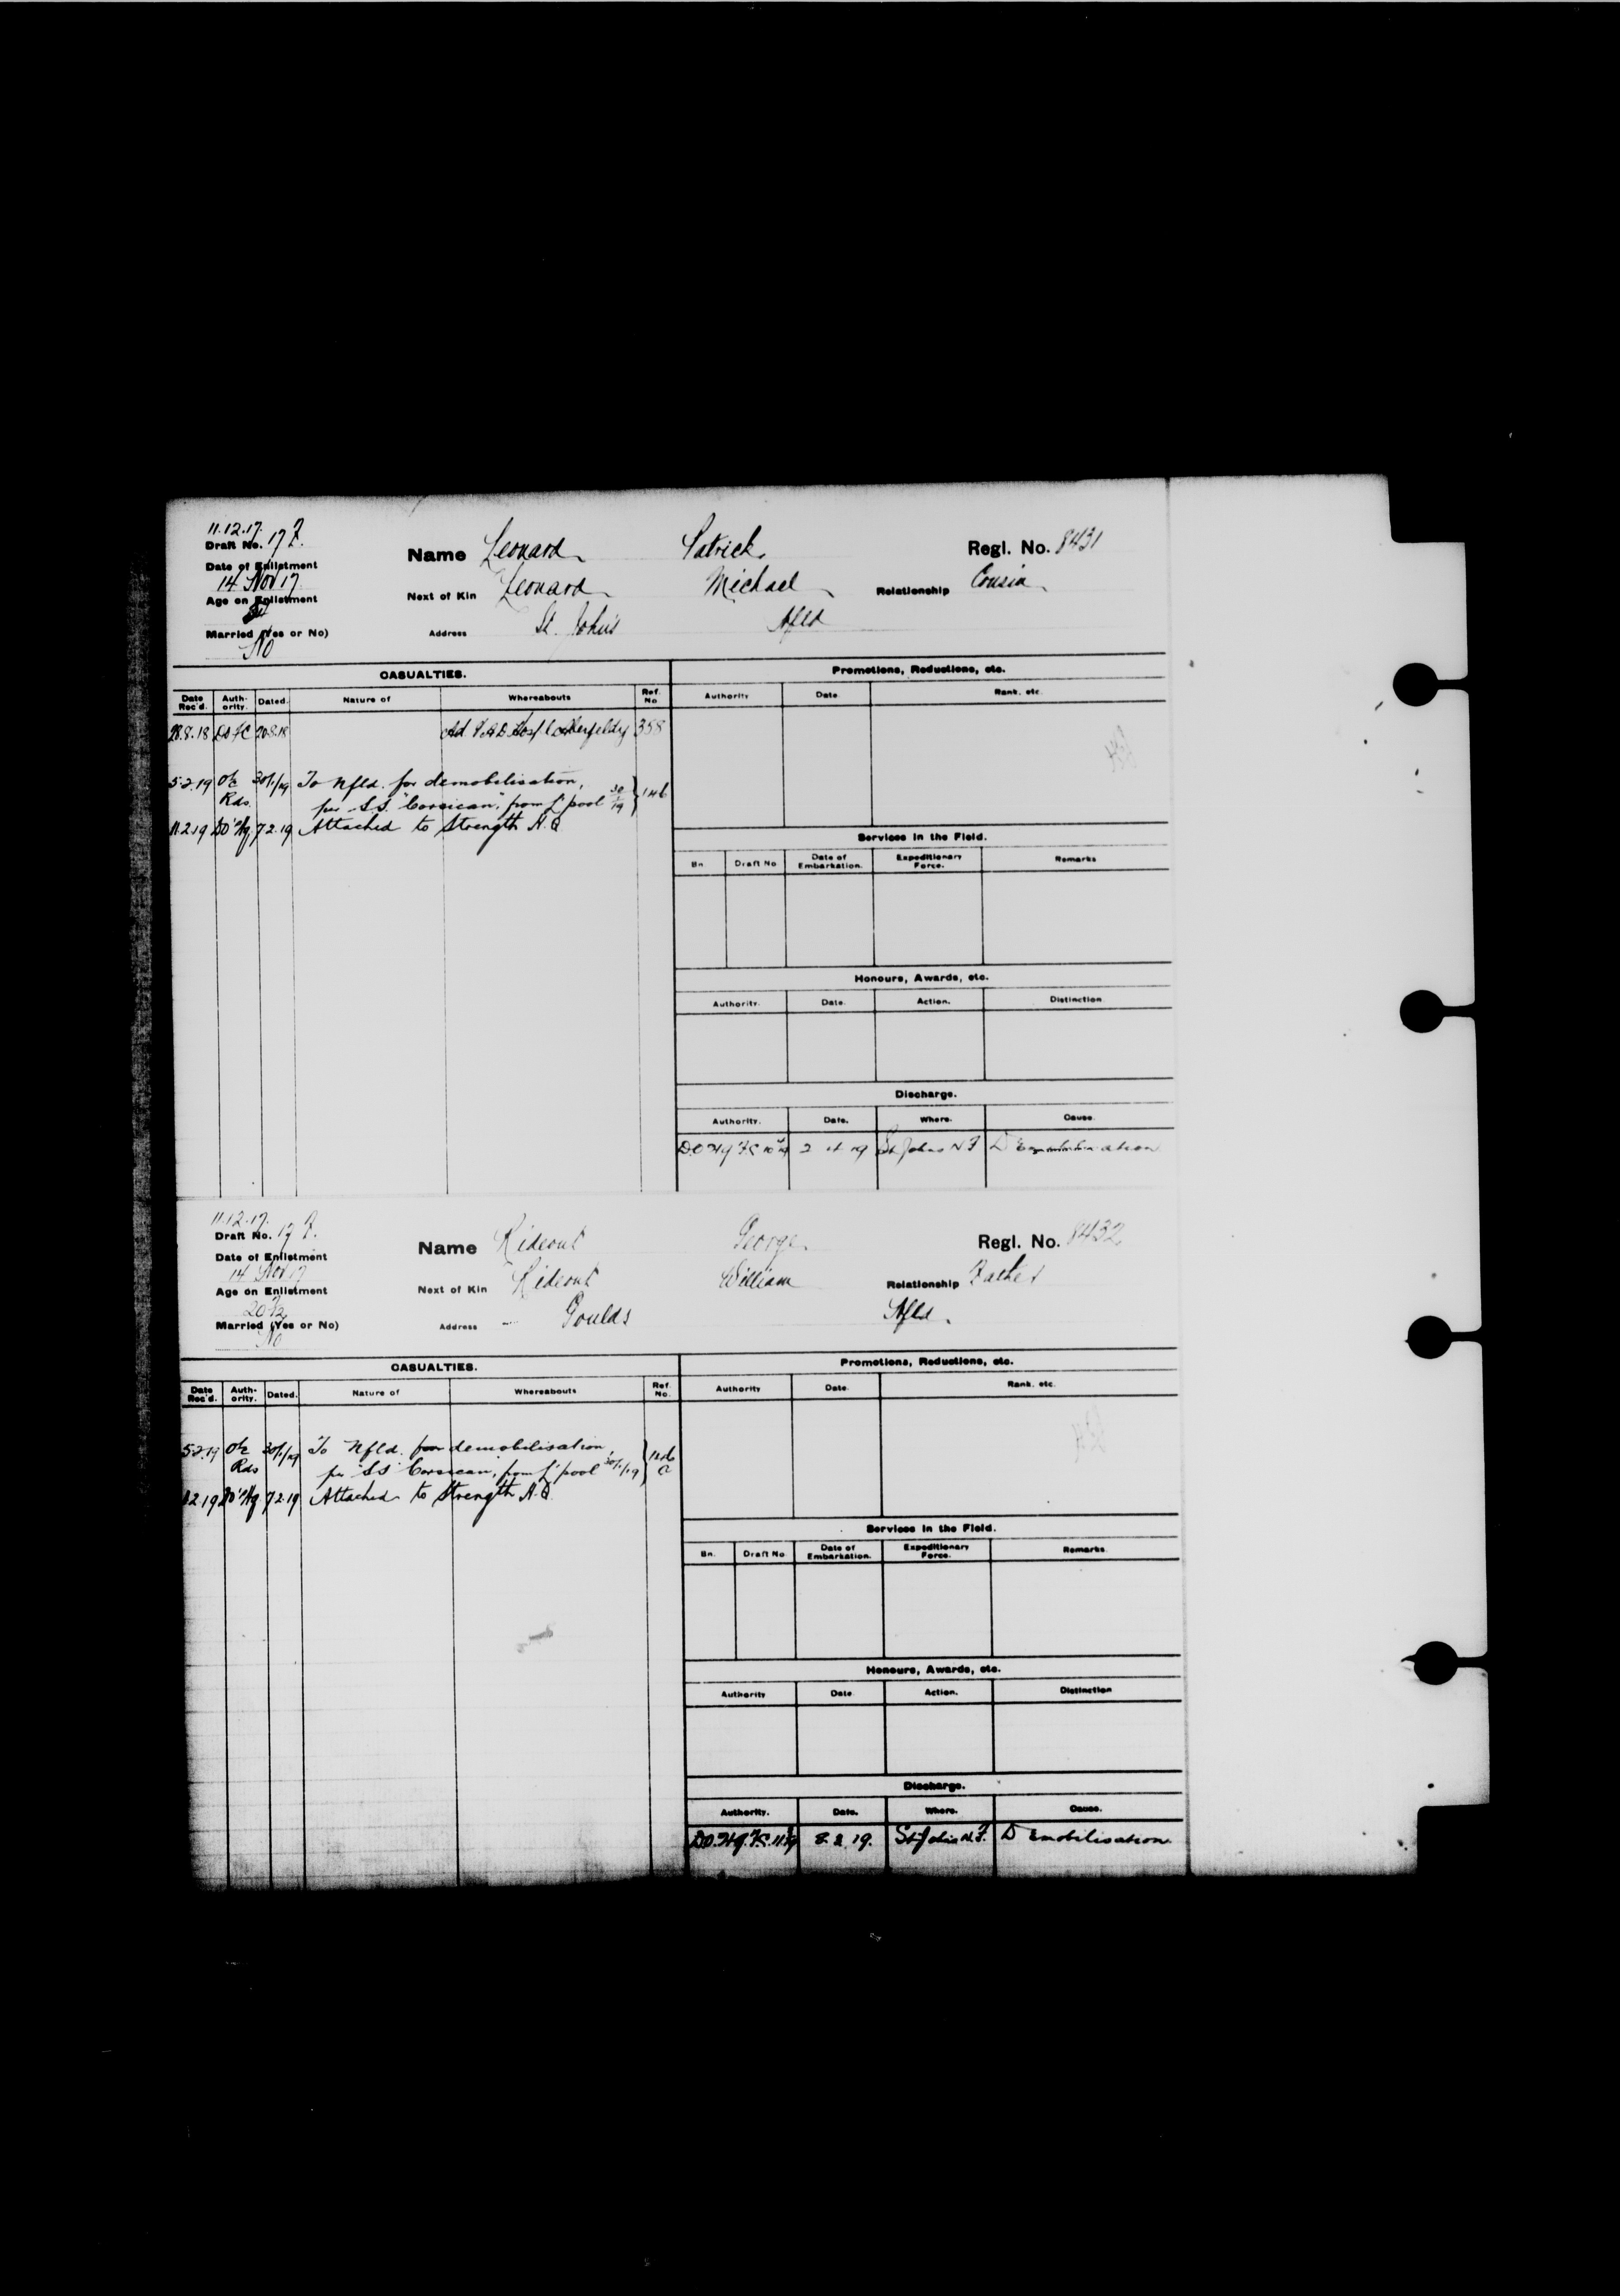 11.12.17.
Draft No. 17 F.
Name Leonard Patrick Regl. No. 8431
Date of Enlistment
14 Nov 17
Next of Kin Leonard Michael Relationship Cousin
Age on Enlistment
Address St. John's Nfld
Married (Yes or No)
No
CASUALTIES. Promotions, Reductions, etc.
Date Rec'd. Auth-ority. Dated. Nature of Whereabouts Ref. No Authority Date Rank, etc.
28.8.18 DO FC 20.8.18 Ad V.A.D Hosp Aberfeldy 358
5.2.19 O/c Rds. 30/1/19 To Nfld. for demobilisation,
per S.S. "Corsican", from L'pool 30/1/19 } 146
11.2.19 DO Hq 7.2.19 Attached to Strength H.Q.
Services in the Field.
Bn. Draft No Date of Embarkation. Expeditionary Force. Remarks
Honours, Awards, etc.
Authority. Date. Action. Distinction
Discharge.
Authority. Date. Where. Cause.
D.O Hq 19 St Johns N F Demobilisation
11.12.17.
Draft No. 17 F.
Name Rideout George Regl. No. 8432
Date of Enlistment
14 Nov 17
Next of Kin Rideout William Relationship Father
Age on Enlistment
Address Goulds Nfld.
Married (Yes or No)
No
CASUALTIES. Promotions, Reductions, etc.
Date Rec'd. Auth-ority. Dated. Nature of Whereabouts Ref. No. Authority Date Rank, etc.
5.2.19 O/c Rds 30/1/19 To Nfld. for demobilisation,
per "SS" Corsican", from L'pool 30/1/19 } 146
11.2.19 DO Hq 7.2.19 Attached to Strength H.Q.
Services in the Field.
Bn. Draft No Date of Embarkation. Expeditionary Force. Remarks
Honours, Awards, etc.
Authority Date Action. Distinction
Discharge.
Authority. Date. Where. Cause.
D.O. Hq. 8.2.19. St Johns N.F. Demobilisation